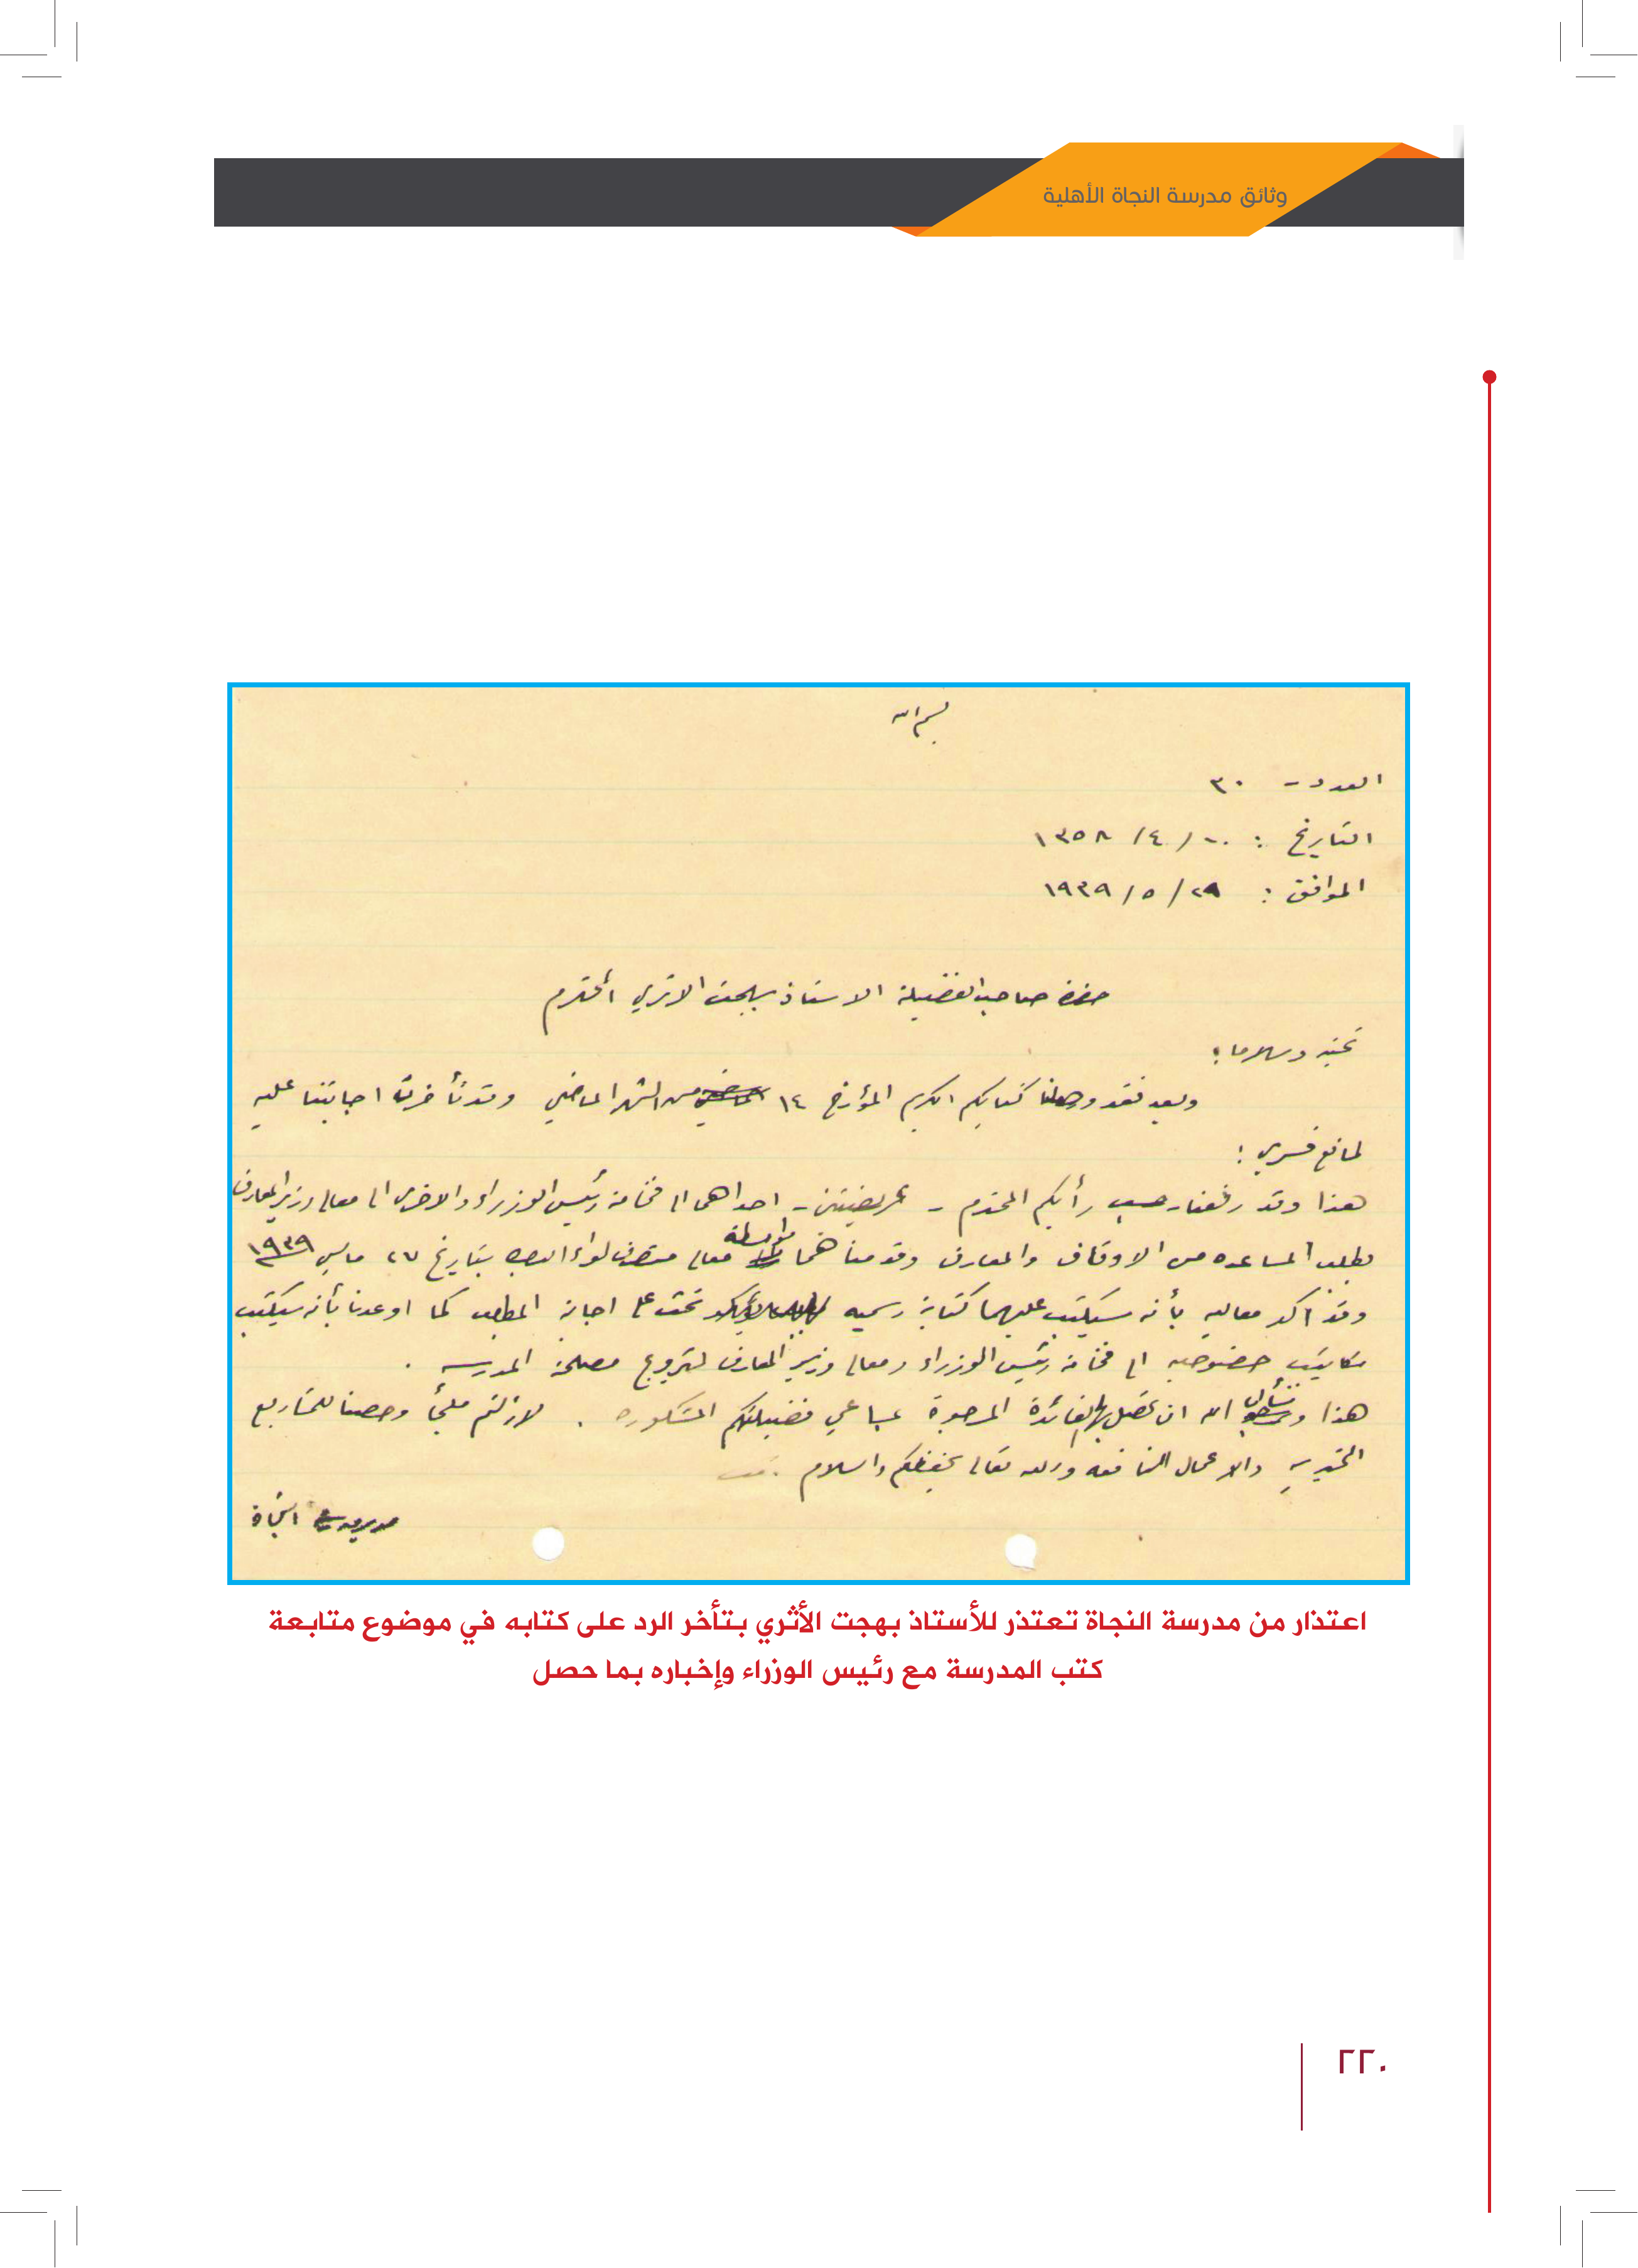 وثائق مدرسة النجاة الأهلية
بسم الله
العدد - ٣٠
التاريخ : ١٠ / ٤ / ١٣٥٨
الموافق : ٢٩ / ٥ / ١٩٣٩
حضرة صاحب الفضيلة الاستاذ بهجت الاثري المحترم
تحية وسلاما ؛
وبعد فقد وصلنا كتابكم الكريم المؤرخ ١٤ من الشهر الماضي وقد تأخرت اجابتنا عليه
لمانع قسري :
هذا وقد رفعنا حسب رأيكم المحترم - عريضتين - احداهما الى فخامة رئيس الوزراء والاخرى الى معالي وزير المعارف
بطلب المساعده من الاوقاف والمعارف وقدمناهما بواسطة معالي متصرف لواء البصرة بتاريخ ٢٧ مايس ١٩٣٩
وقد أكد معاليه بأنه سيكتب عليهما كتابة رسميه تحث على اجابة المطلب كما اوعدنا بأنه سيكتب
مكاتيب خصوصيه الى فخامة رئيس الوزراء ومعالي وزير المعارف لترويج مصلحة المدرسه .
هذا ونسأل الله ان تحصل بها الفائدة المرجوة بمساعي فضيلتكم المشكوره . لازلتم ملجأ وحصنا للمشاريع
الخيريه والاعمال النافعه والله تعالى يحفظكم والسلام .
مدير مدرسة النجاة
اعتذار من مدرسة النجاة تعتذر للأستاذ بهجت الأثري بتأخر الرد على كتابه في موضوع متابعة
كتب المدرسة مع رئيس الوزراء وإخباره بما حصل
٢٢٠